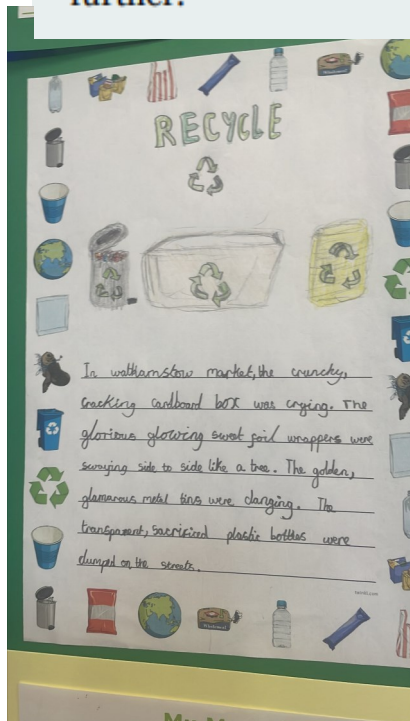 further.
RECYCLE
In walthamstow market, the crunchy,
cracking cardboard box was crying. The
glorious glowing sweet foil wrappers were
swaying side to side like a tree. The golden,
glamarous metal tins were clanging. The
transparent, sacrificed plastic bottles were
dumped on the streets.